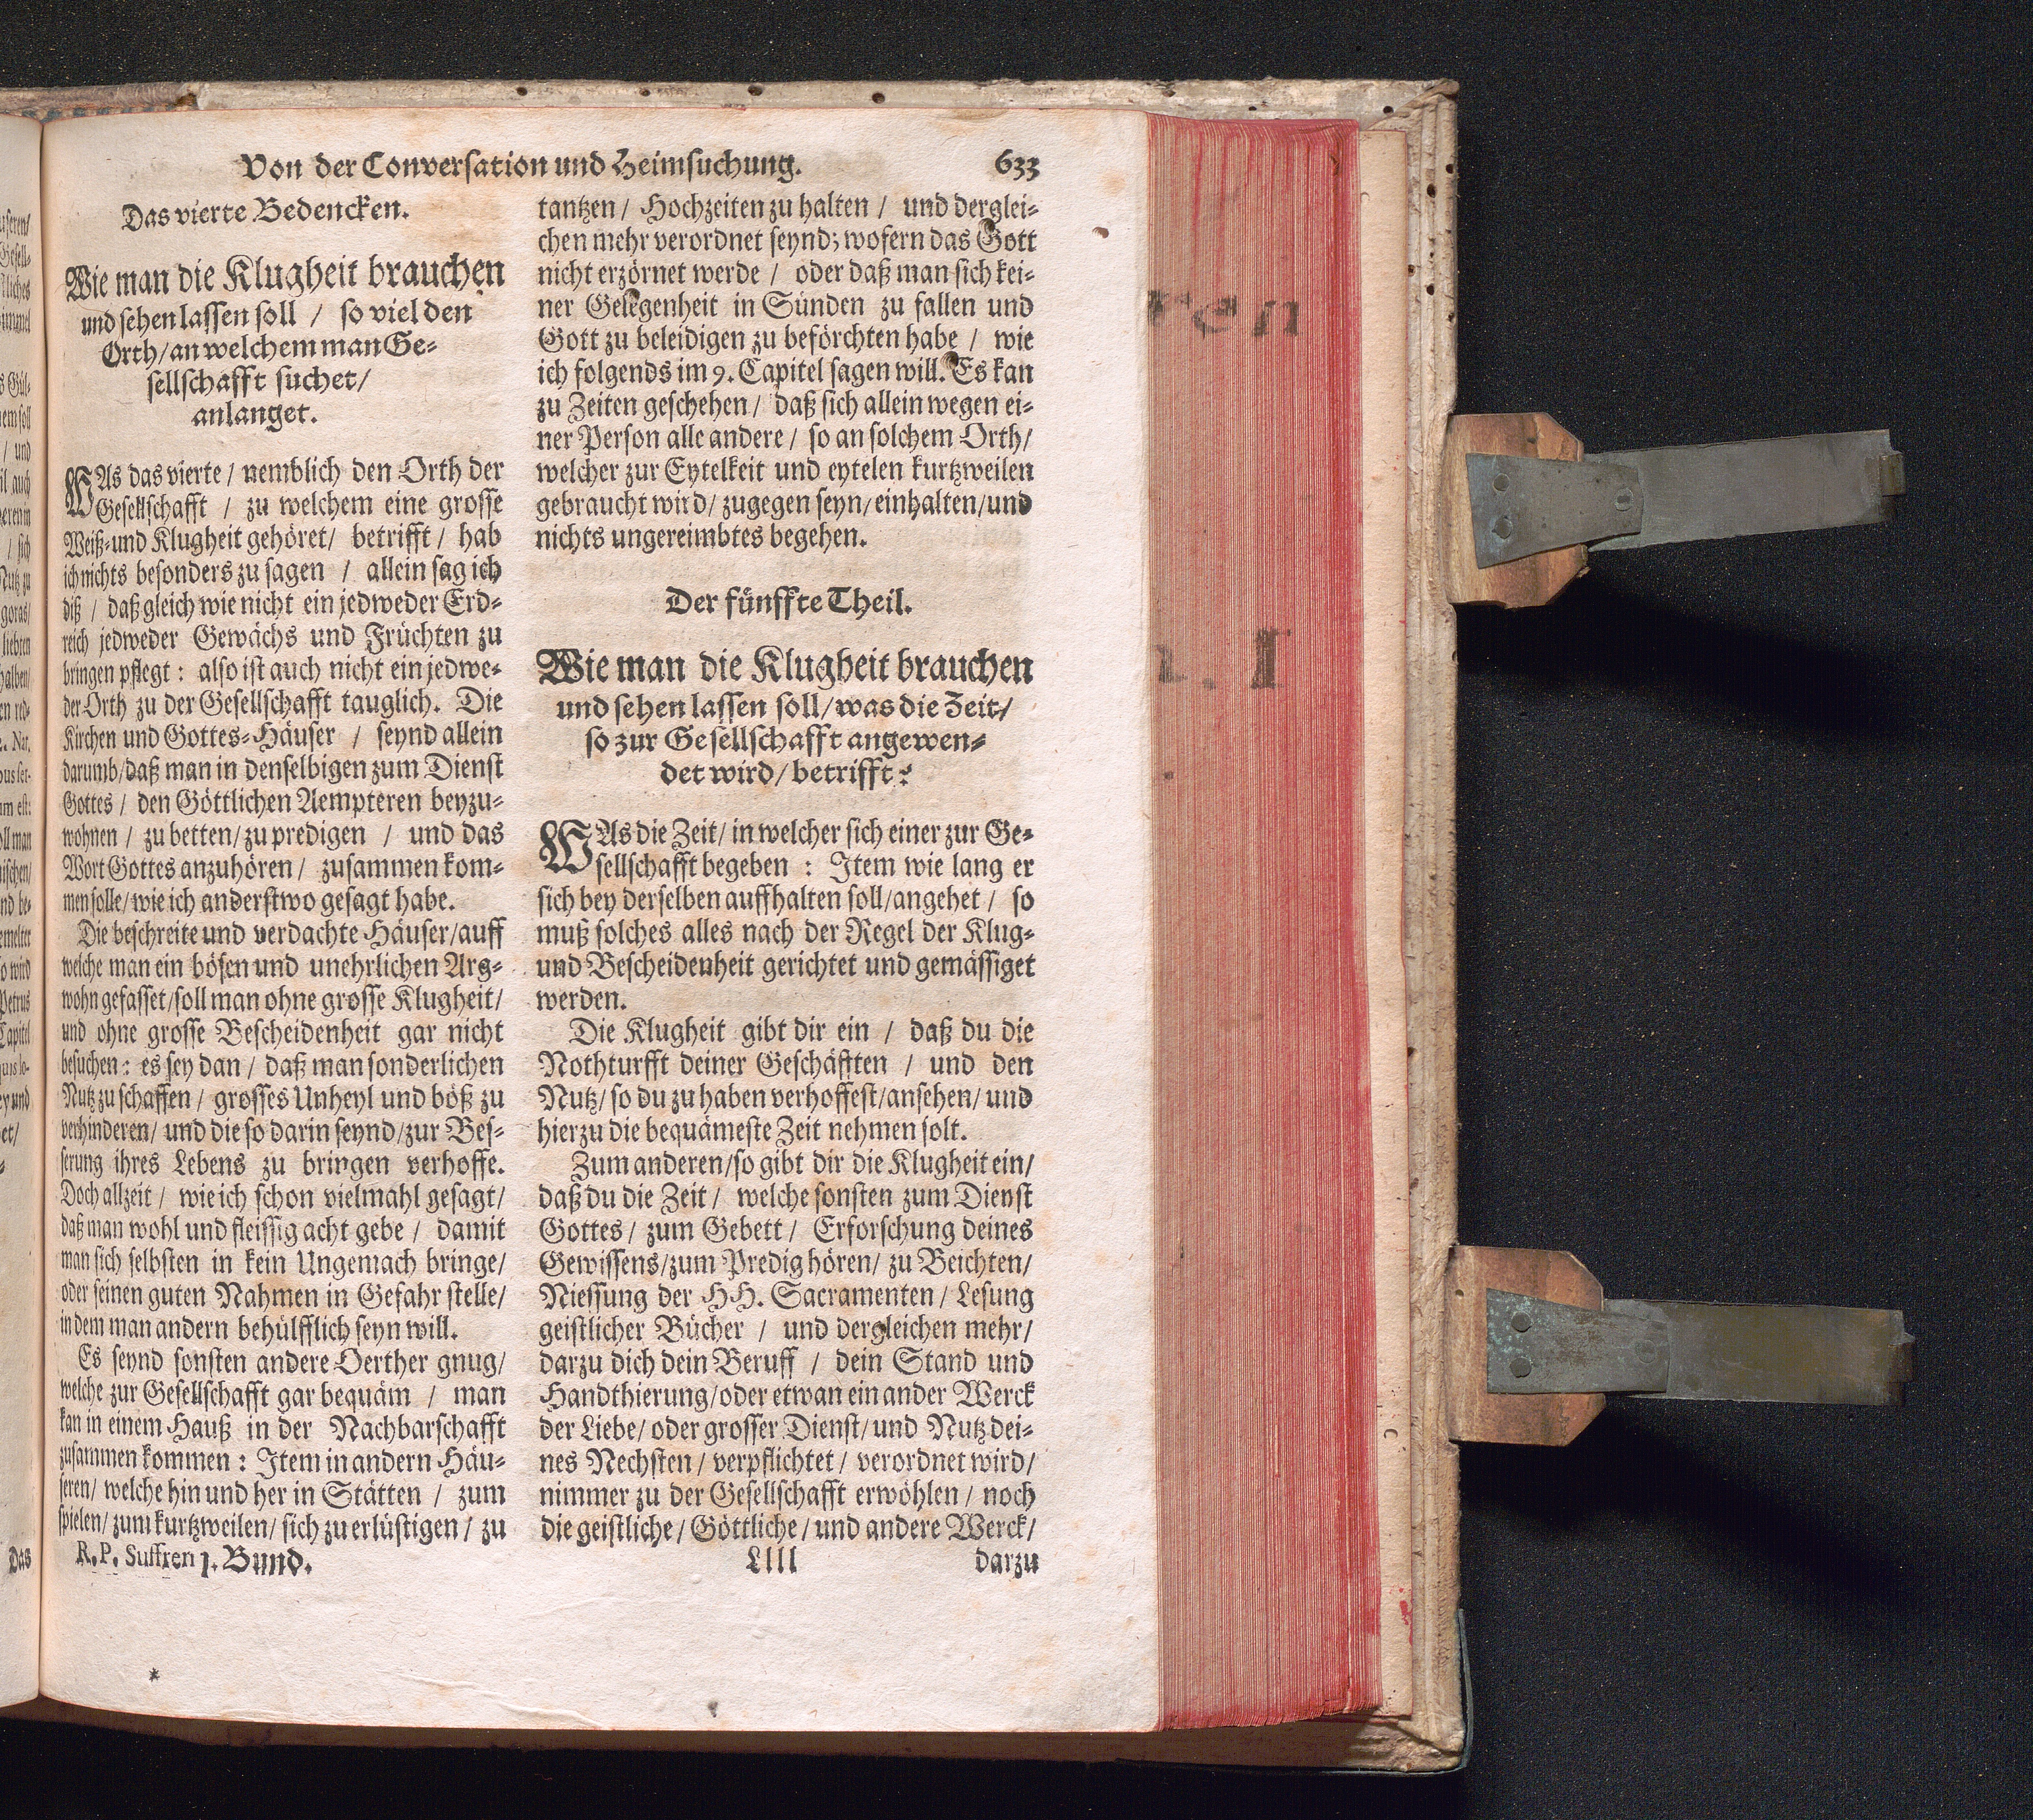 Von der Conversation und Heimsuchung. 633
Das vierte Bedencken.
Wie man die Klugheit brauchen
und sehen lassen soll / so viel den
Orth/an welchem man Ge-
sellschafft suchet/
anlanget.
WAs das vierte / nemblich den Orth der
Gesellschafft / zu welchem eine grosse
Weiß-und Klugheit gehöret/ betrifft / hab
ich nichts besonders zu sagen / allein sag ich
diß / daß gleich wie nicht ein jedweder Erd-
reich jedweder Gewächs und Früchten zu
bringen pflegt : also ist auch nicht ein jedwe-
der Orth zu der Gesellschafft tauglich. Die
Kirchen und Gottes-Häuser / seynd allein
darumb/daß man in denselbigen zum Dienst
Gottes / den Göttlichen Aempteren beyzu-
wohnen / zu betten/zu predigen / und das
Wort Gottes anzuhören/ zusammen kom-
men solle/wie ich anderstwo gesagt habe.
Die beschreite und verdachte Häuser/auff
welche man ein bösen und unehrlichen Arg-
wohn gefasset/soll man ohne grosse Klugheit/
und ohne grosse Bescheidenheit gar nicht
besuchen : es sey dan / daß man sonderlichen
Nutz zu schaffen / grosses Unheyl und böß zu
verhinderen/ und die so darin seynd/zur Bes-
serung ihres Lebens zu bringen verhoffe.
Doch allzeit / wie ich schon vielmahl gesagt/
daß man wohl und fleissig acht gebe / damit
man sich selbsten in kein Ungemach bringe/
oder seinen guten Nahmen in Gefahr stelle/
in dem man andern behülfflich seyn will.
Es seynd sonsten andere Oerther gnug/
welche zur Gesellschafft gar bequäm / man
kan in einem Hauß in der Nachbarschafft
zusammen kommen : Item in andern Häu-
seren/ welche hin und her in Stätten / zum
spielen/ zum kurtzweilen/ sich zu erlüstigen / zu
R. P. Suffren 1. Bund.
tantzen / Hochzeiten zu halten / und derglei-
chen mehr verordnet seynd; wofern das Gott
nicht erzörnet werde / oder daß man sich kei-
ner Gelegenheit in Sünden zu fallen und
Gott zu beleidigen zu beförchten habe / wie
ich folgends im 9. Capitel sagen will. Es kan
zu Zeiten geschehen / daß sich allein wegen ei-
ner Person alle andere / so an solchem Orth/
welcher zur Eytelkeit und eytelen kurtzweilen
gebraucht wird/ zugegen seyn/einhalten/und
nichts ungereimbtes begehen.
Der fünffte Theil.
Wie man die Klugheit brauchen
und sehen lassen soll/was die Zeit/
so zur Gesellschafft angewen-
det wird/betrifft?
WAs die Zeit/ in welcher sich einer zur Ge-
sellschafft begeben : Item wie lang er
sich bey derselben auffhalten soll/angehet / so
muß solches alles nach der Regel der Klug-
und Bescheidenheit gerichtet und gemässiget
werden.
Die Klugheit gibt dir ein / daß du die
Nothturfft deiner Geschäftten / und den
Nutz/ so du zu haben verhoffest/ansehen/ und
hierzu die bequämeste Zeit nehmen solt.
Zum anderen/so gibt dir die Klugheit ein/
daß du die Zeit / welche sonsten zum Dienst
Gottes / zum Gebett / Erforschung deines
Gewissens/zum Predig hören/ zu Beichten/
Niessung der HH. Sacramenten / Lesung
geistlicher Bücher / und dergleichen mehr/
darzu dich dein Beruff / dein Stand und
Handthierung/oder etwan ein ander Werck
der Liebe/ oder grosser Dienst/ und Nutz dei-
nes Nechsten / verpflichtet / verordnet wird/
nimmer zu der Gesellschafft erwöhlen / noch
die geistliche / Göttliche / und andere Werck/
Llll darzu
ren
. I
Das